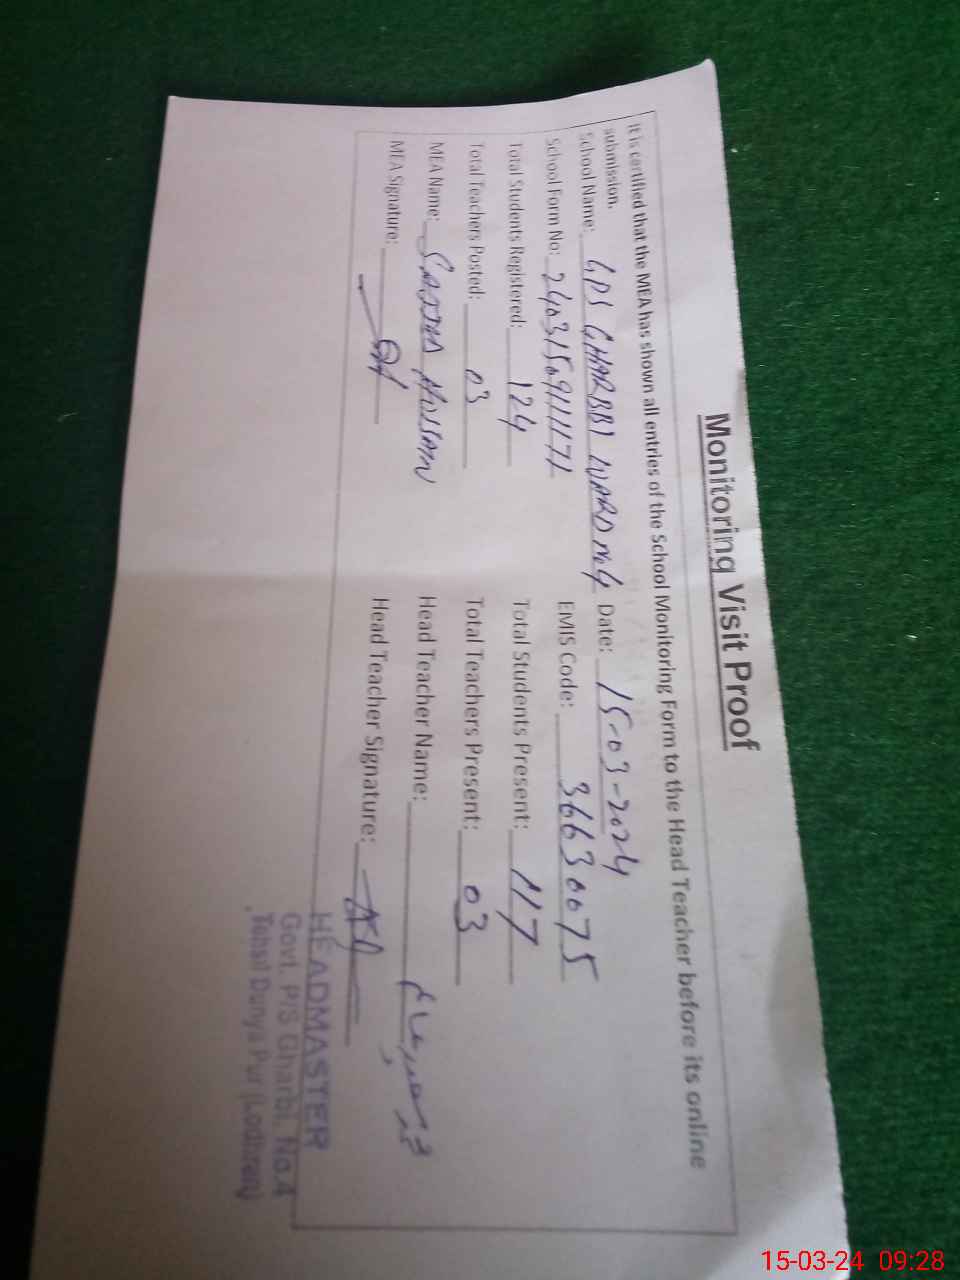 Monitoring Visit Proof
It is certified that the MEA has shown all entries of the School Monitoring Form to the Head Teacher before its online
submission.
School Name: GPS GHARBBI WARD no. 4 Date: 15-03-2024
School Form No: 2403150911117 EMIS Code: 36630075
Total Students Registered: 124 Total Students Present: 117
Total Teachers Posted: 03 Total Teachers Present: 03
MEA Name: SAJJAD HUSSAIN Head Teacher Name:
MEA Signature: Head Teacher Signature:
HEADMASTER
Govt. P/S Gharbi. No.4
Tehsil Dunya Pur (Lodhran)
15-03-24 09:28